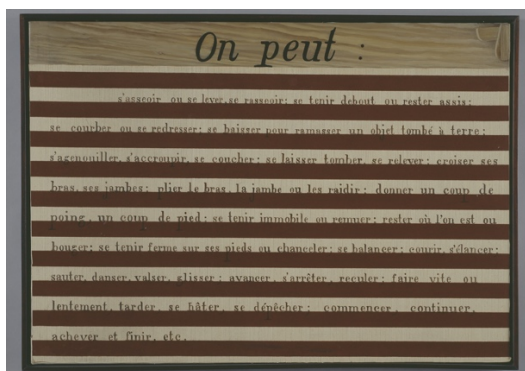 On peut :
s'asseoir ou se lever, se rasseoir; se tenir debout ou rester assis;
se courber ou se redresser; se baisser pour ramasser un objet tombé à terre;
s'agenouiller, s'accroupir, se coucher; se laisser tomber, se relever; croiser ses
bras, ses jambes; plier le bras, la jambe ou les raidir; donner un coup de
poing, un coup de pied; se tenir immobile ou remuer; rester où l'on est ou
bouger; se tenir ferme sur ses pieds ou chanceler; se balancer; courir, s'élancer;
sauter, danser, valser, glisser; avancer, s'arrêter, reculer; faire vite ou
lentement, tarder, se hâter, se dépêcher; commencer, continuer,
achever et finir, etc.